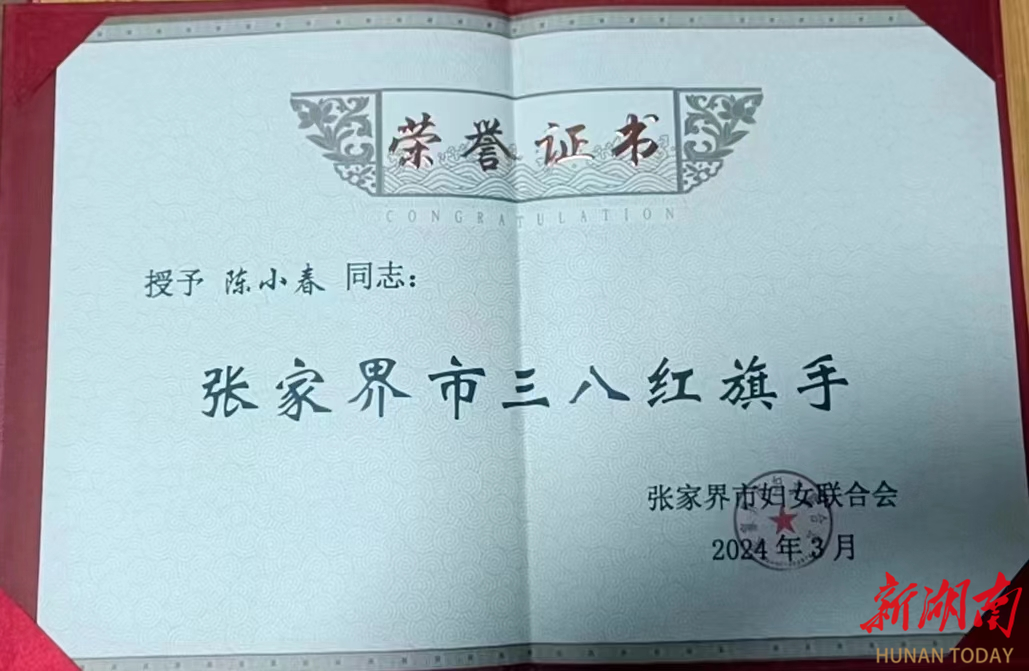 荣誉证书
CONGRATULATION
授予 陈小春 同志：
张家界市三八红旗手
张家界市妇女联合会
2024年3月
新湖南
HUNAN TODAY